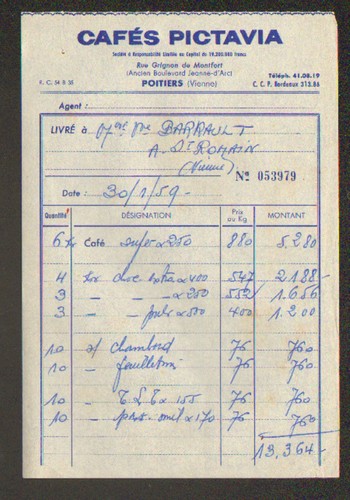 CAFÉS PICTAVIA
Société à Responsabilité Limitée au Capital de 19.200.000 francs
Rue Grignon de Montfort
(Ancien Boulevard Jeanne-d'Arc)
R. C. 54 B 35 POITIERS (Vienne)
Téléph. 41.08.19
C. C. P. Bordeaux 313.86
Agent :
LIVRÉ à BARRAULT
A St ROMAIN
(Vienne) Nº 053979
Date : 30/1/59-
Quantité DÉSIGNATION Prix au Kg MONTANT
6 Café super a 250 880 5.280
4 extra a 400 547 2188-
3 - - a 250 552 1.656
3 - a 500 400 1.200
10 chambord 76 760
10 - 76 760
10 - a 155 76 760
10 - a 170 76 760
13.364-